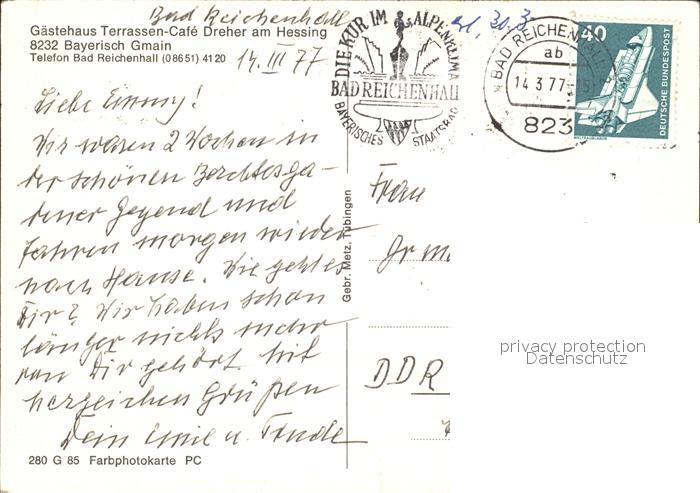 Bad Reichenhall
Gästehaus Terrassen-Café Dreher am Hessing
8232 Bayerisch Gmain
Telefon Bad Reichenhall (0 86 51) 41 20
14. III 77
Liebe Emmy!
Wir waren 2 Wochen in
der schönen Berchtesga-
dener Gegend und
fahren morgen wieder
nach Hause. Wie geht es
Dir? Wir haben schon
länger nichts mehr
von Dir gehört. Mit
herzlichen Grüßen
Dein Emil u. Trude
280 G 85 Farbphotokarte PC
Gebr. Metz, Tübingen
DIE KUR IM ALPENKLIMA
BAD REICHENHALL
BAYERISCHES STAATSBAD
30.3
BAD REICHENHALL
ab
14.3.77
823
40
DEUTSCHE BUNDESPOST
WELTRAUMLABOR
Frau
DDR
privacy protection
Datenschutz